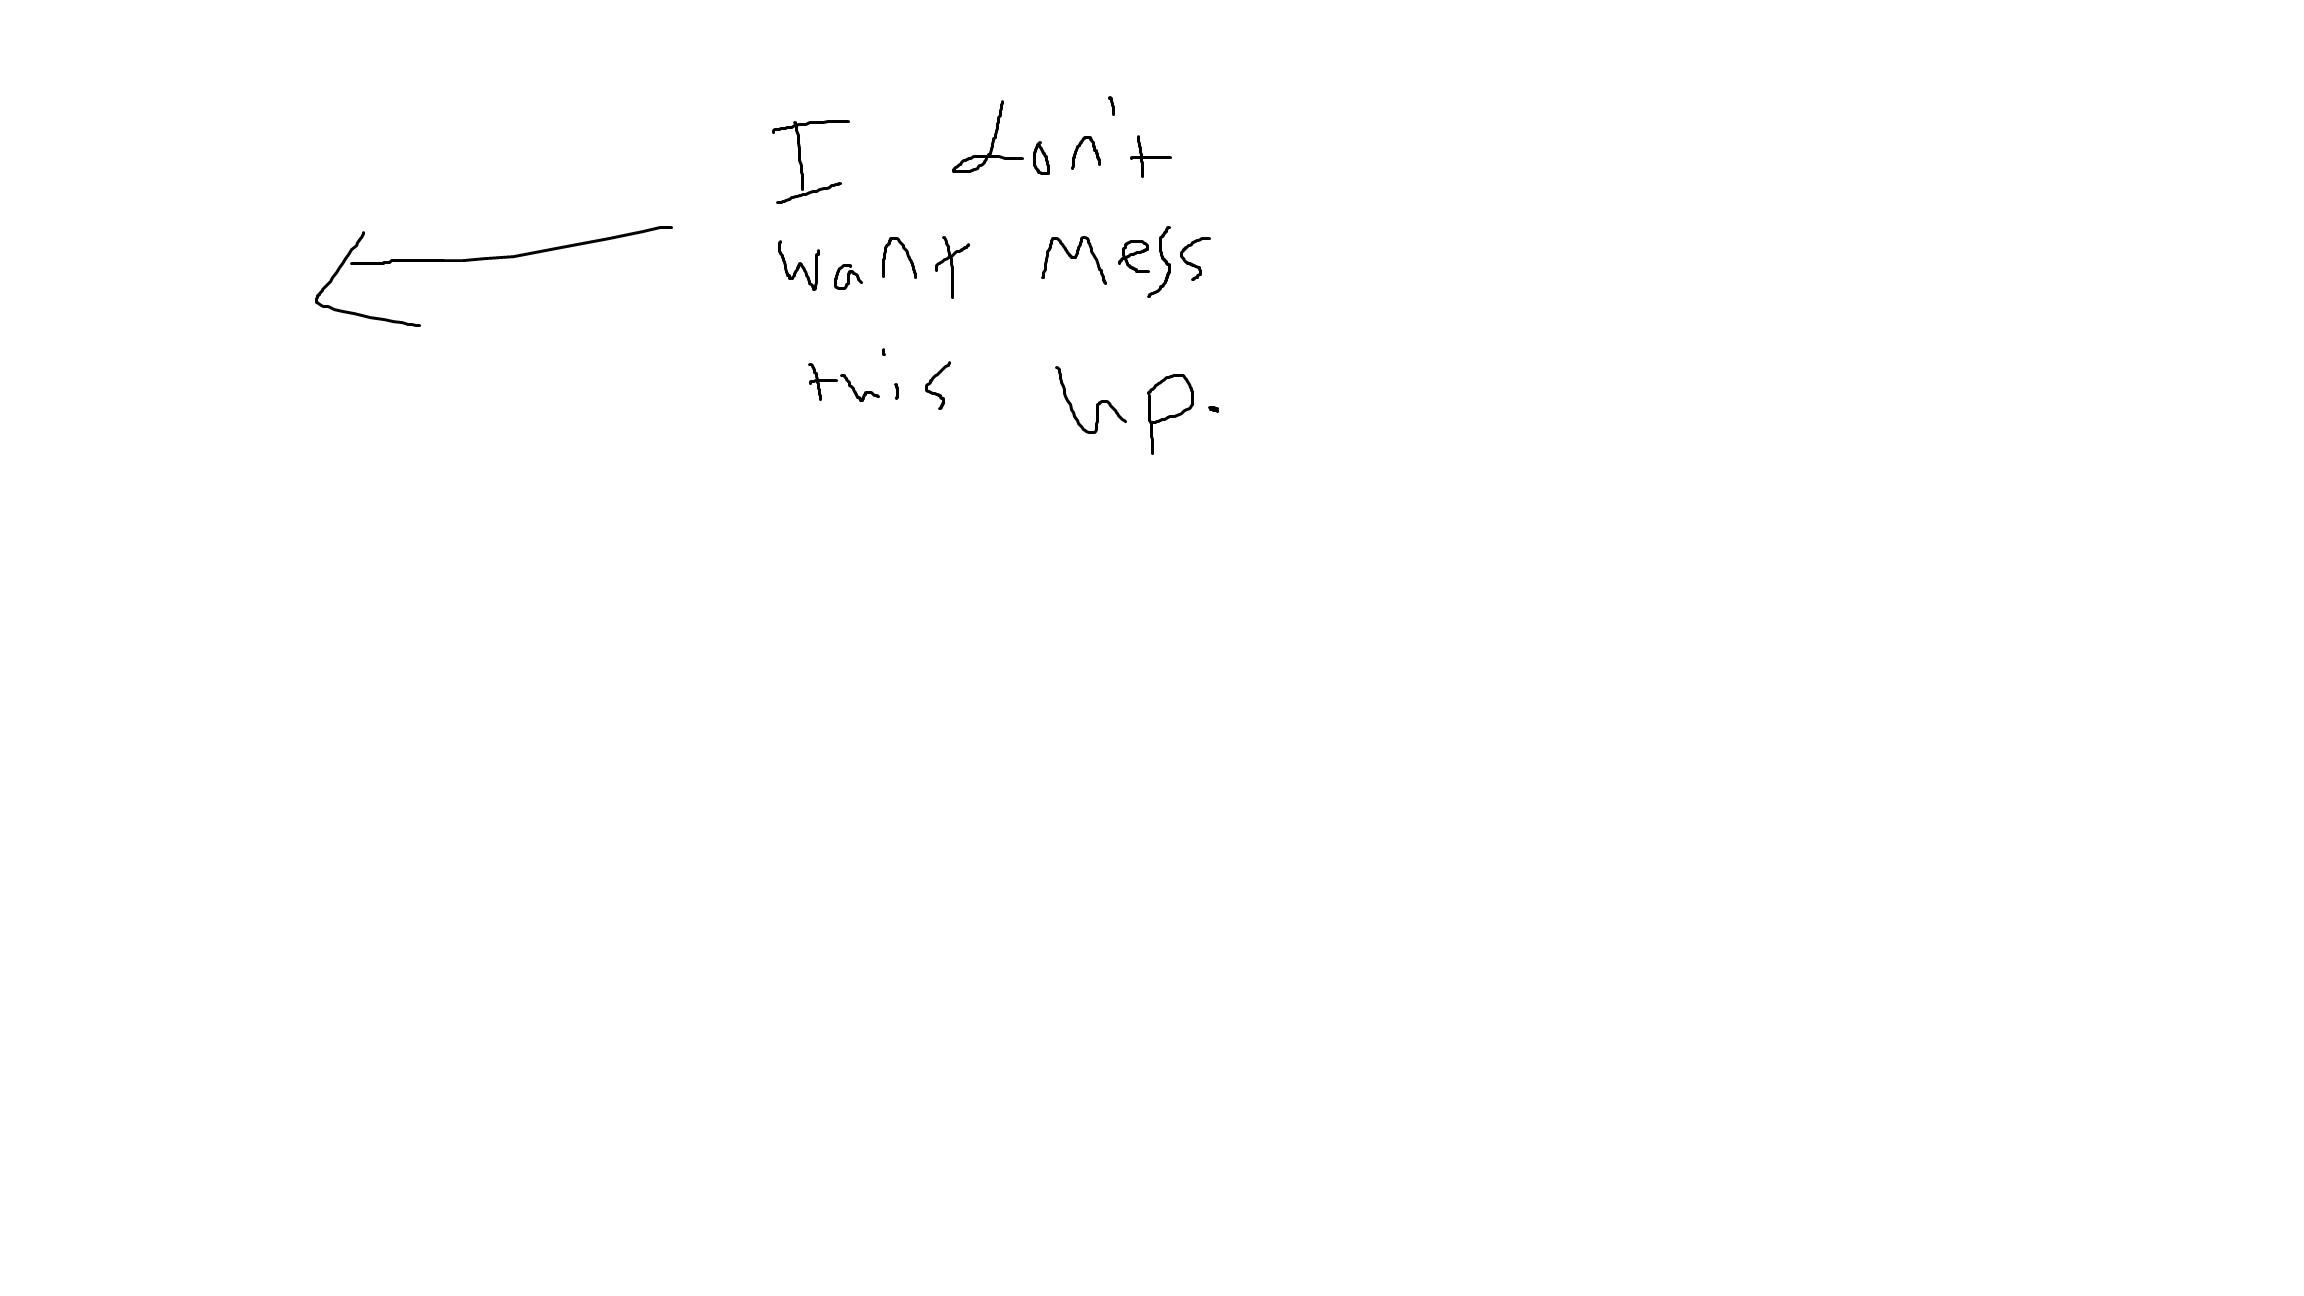 I don't
want mess
this up.